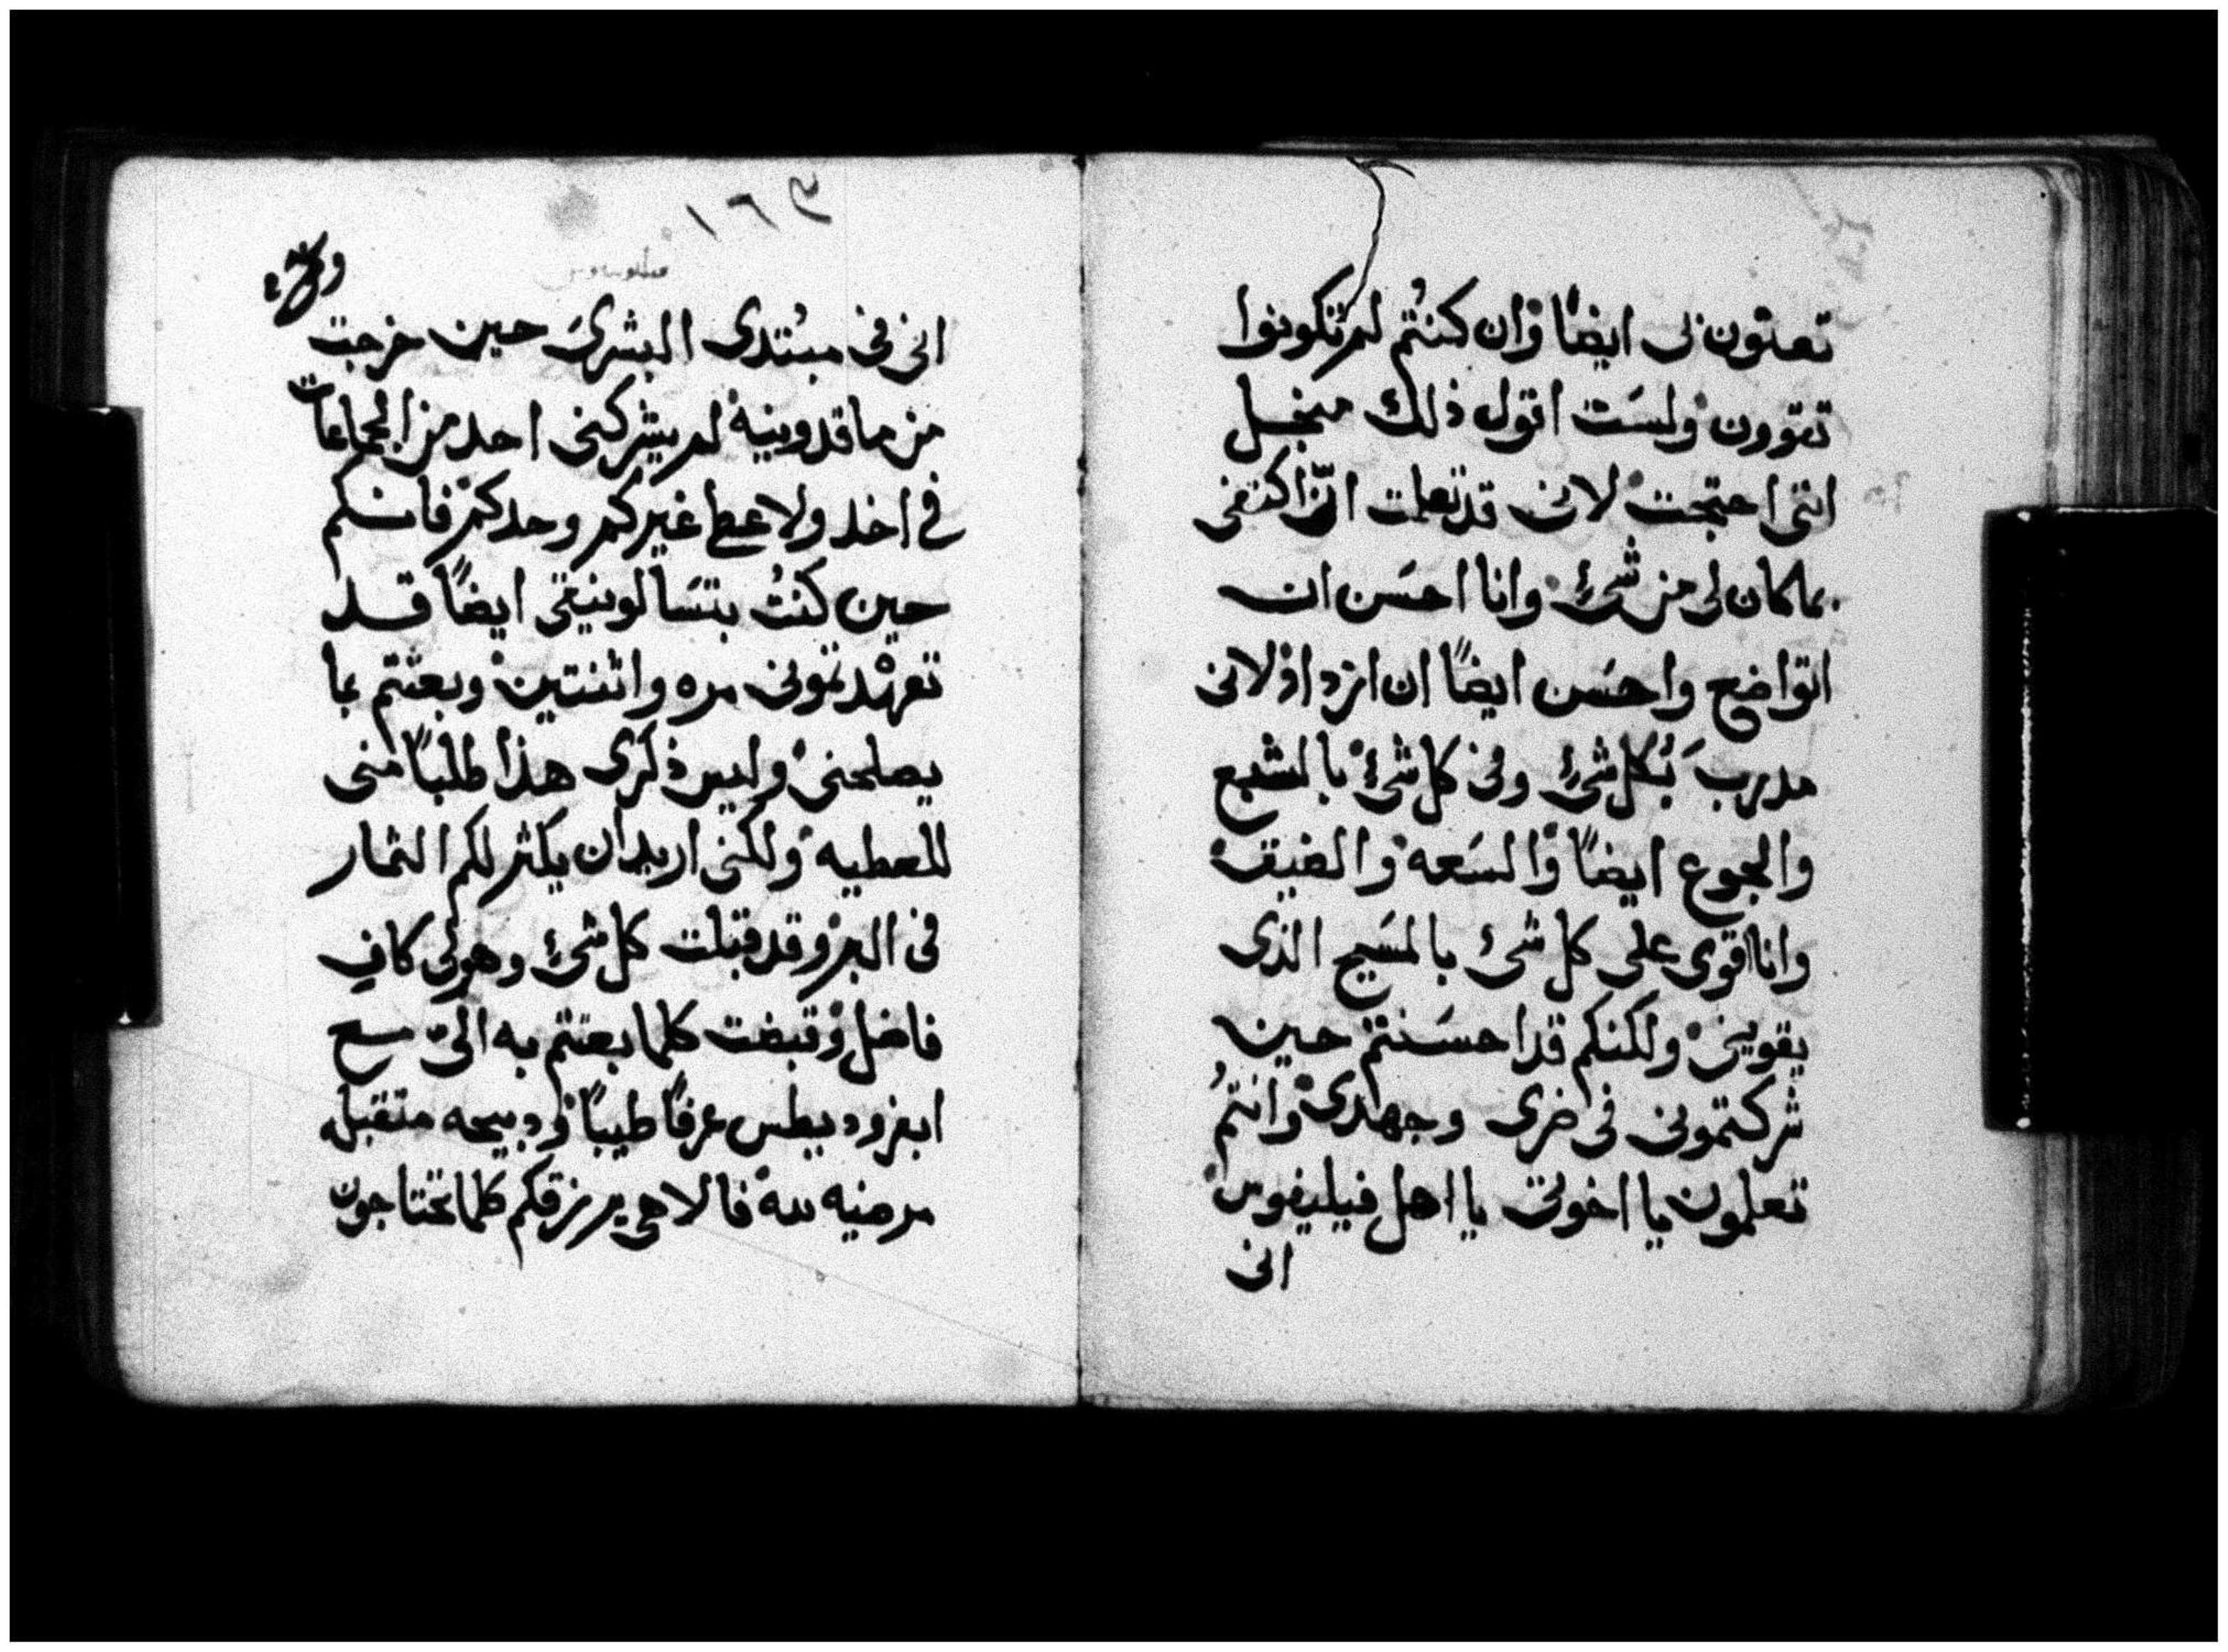 تعتون بى ايضًا وان كنتُم لم تكونوا
تقوون ولسَت اقول ذلك منجل
اننى احتجت لانى قد تعلمت انّ اكتفى
بما كان لى من شئ وانا احسَن ان
اتواضع واحسَن ايضًا ان ازداد لانى
مدرب بكل شئ وفى كل شئ بالشبع
والجوع ايضًا والسَعه والضيق
وانا اقوى على كل شئ بالمسَيح الذى
يقوينى ولكنكم قد احسَنتم حين
شركتمونى فى ضرى وجهدى وانتمُ
تعلمون يا اخوتى يا اهل فيليفوس
انى
١٦٩
انى فى مبُتدى البشرىَ حين خرجت
من ماقدونيه لم يشركنى احد من الجماعات
فى اخد ولا عطا غيركم وحدكم فانكم
حين كنتُ بتسَالونيقى ايضًا قد
تعهدتمونى مره واثنتين وبعثتم بما
يصلحنى وليس ذكرى هذا طلبًا منى
للعطيه ولكنى اريد ان يكثر لكم الثمار
فى البر وقد قبلت كل شئ وهو لى كاف
فاضل وقبضت كلما بعثتم به الىّ مع
ابفروديطس عرفًا طيبًا ودبيحه متقبله
مرضيه لله فالاهى يرزقكم كلما تحتاجون